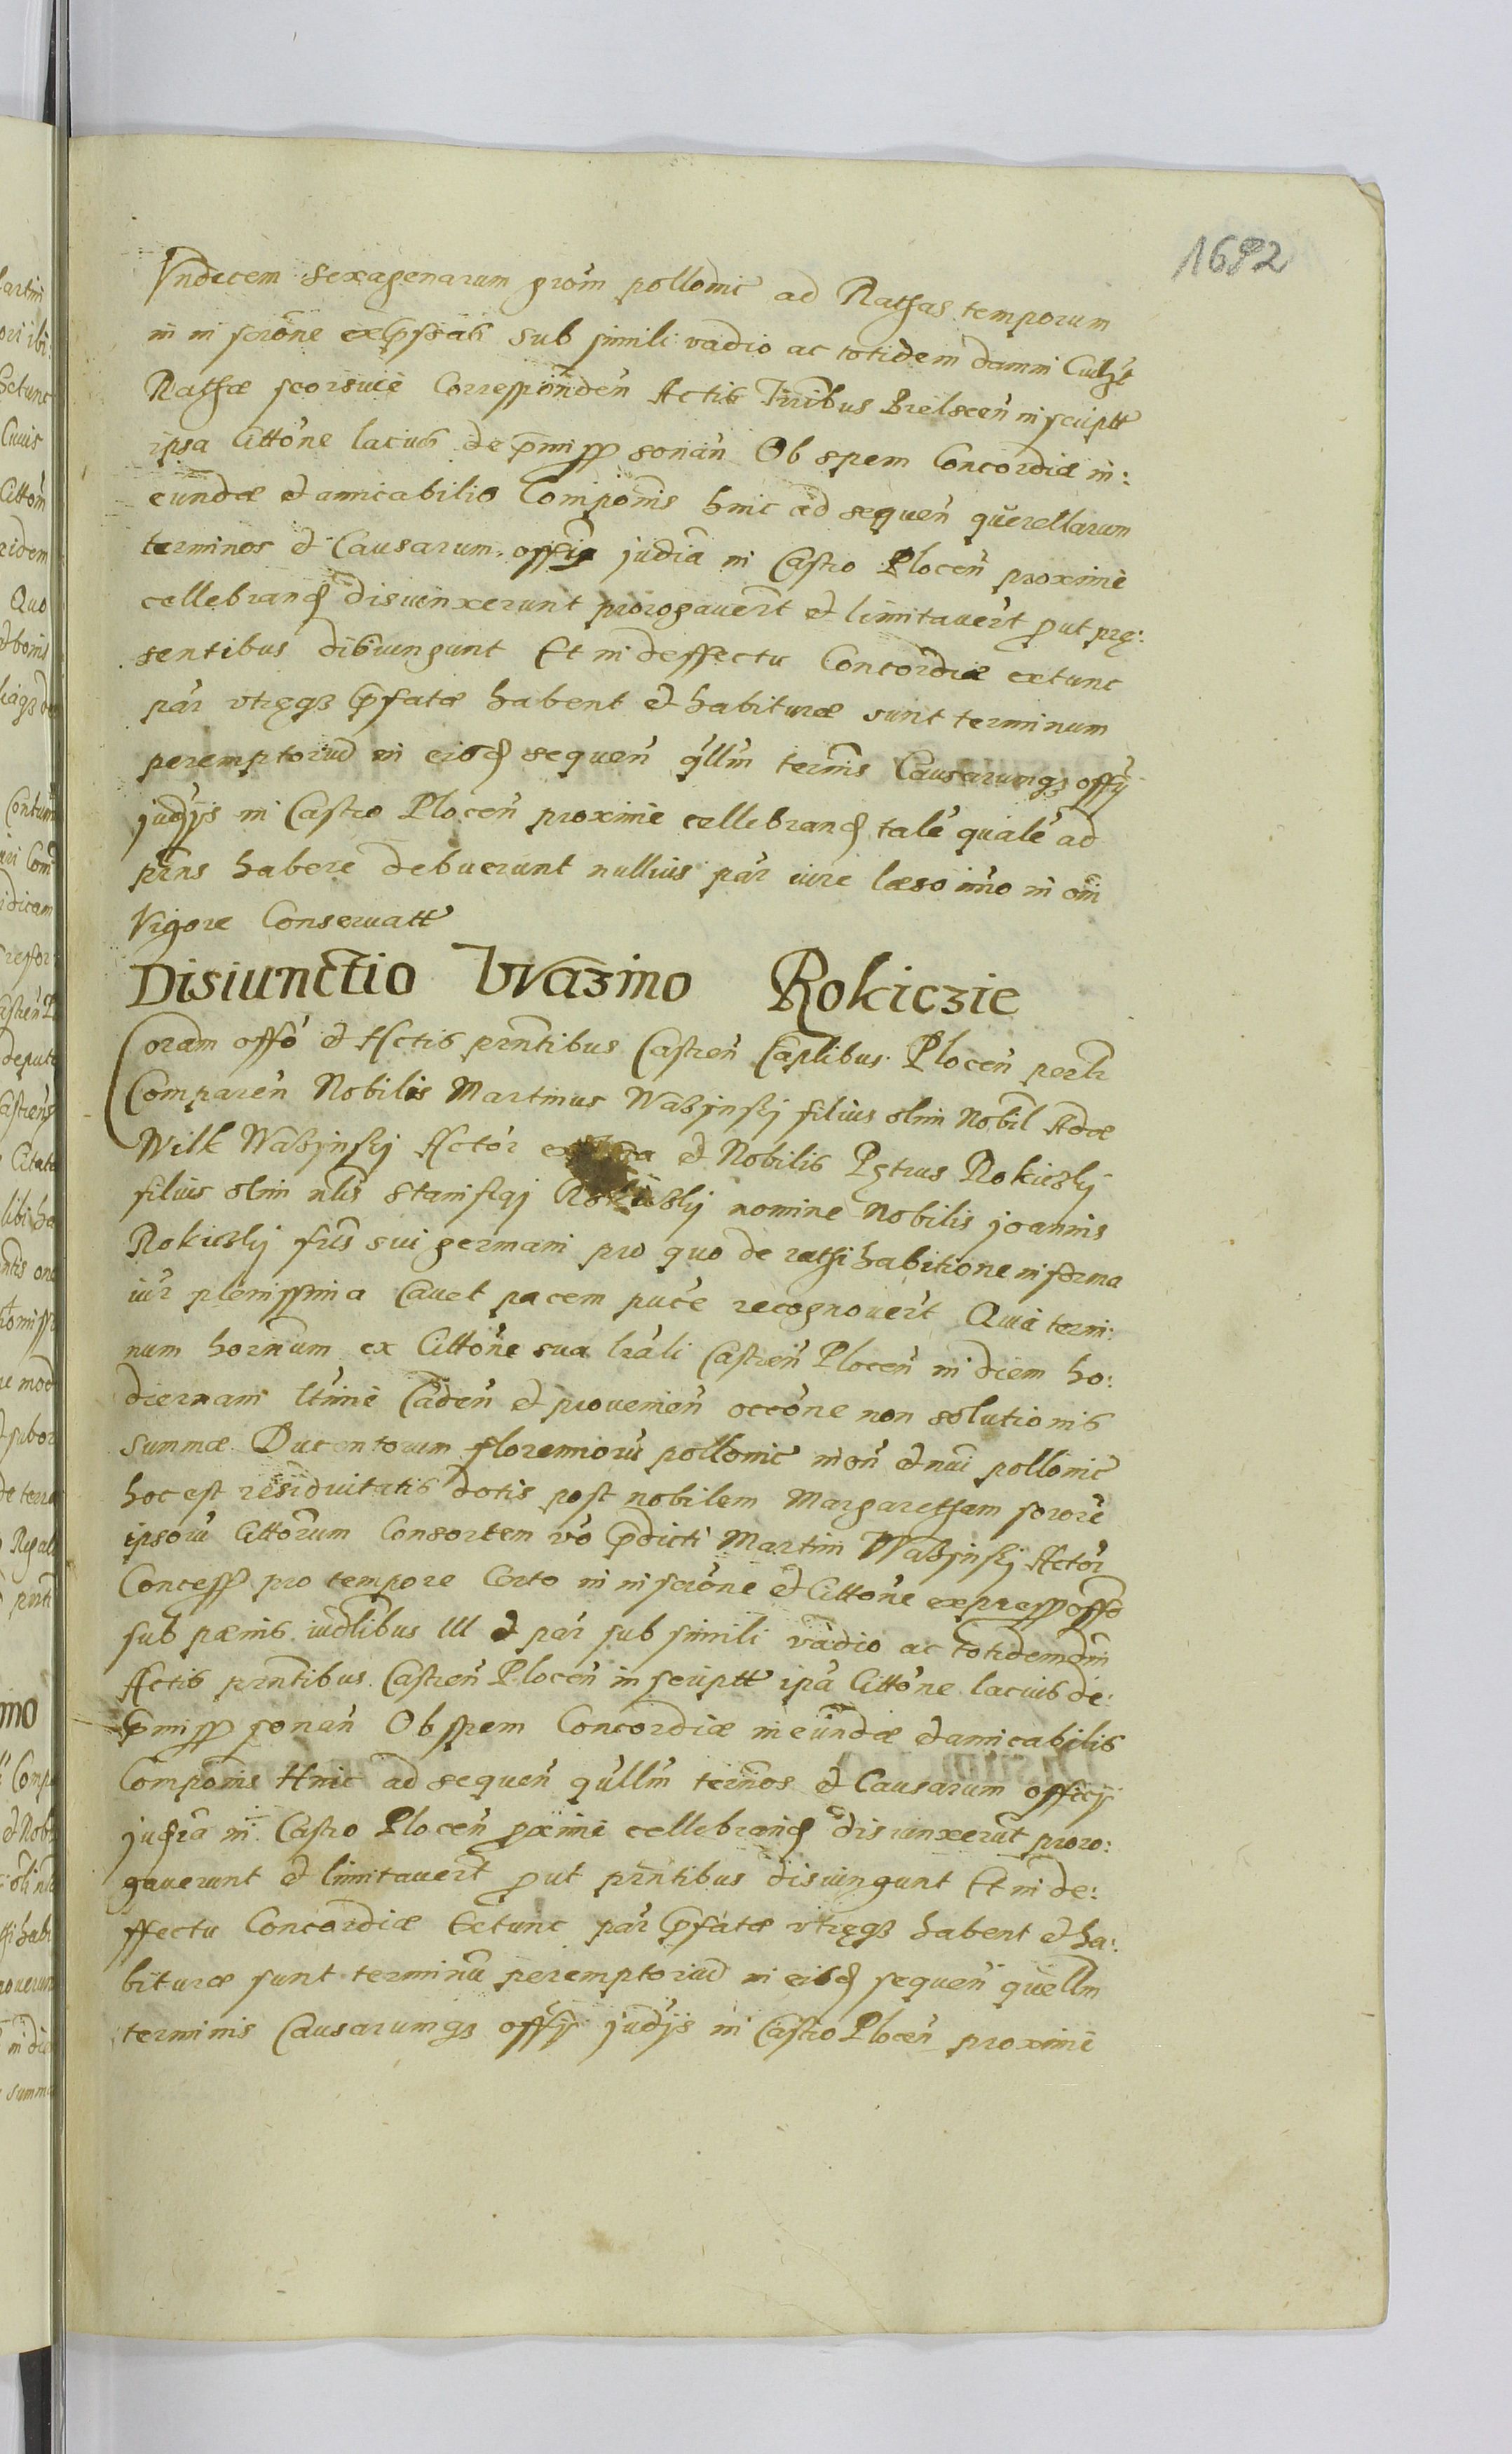 1692
Vndecem sexagenarum grom̃ pollonic̃ ad Rathas temporum
in inscrōne exp̃ssati sub simili vadio ac totidem damni Cuilᵗ
Rathæ seorsive Corresponden̄ Actis Trribus Bielscen̄ inscriptt
ipsa Citto͞ne lacius de p͞miss sonan̄ Ob spem Concordiæ in:
eundæ et amicabilis Compon͞is hinc ad sequen̄ querellarum
terminos et Causarum offia judia in Castro Plocen̄ proxime
cellebrand disiunxerunt prorogauer͞t et limitauer͞t put pre:
sentibus disiungunt Et in deffectu Concordiæ extunc
par vtręqȝ p͞fatæ habent et habituræ sunt terminum
peremptoriu͞ in eisd sequen̄ qllm̄ termis Causarumqȝ offy
judys in Castro Plocen̄ proxime cellebrand tale͞ quale͞ ad
prns habere debuerunt nullius par iure læso im͞o in om͞i
Vigore Conseruatt
Disiunctio Wazino Rokiczie
Coram offo et Actis prntibus Castren̄ Caplibus Plocen̄ perlr
Comparen̄ Nobilis Martinus Waszynskj filius olim Nobil Adæ
Wilk Waszynskj Actor et Nobilis Petrus Rokiczkj
filius olim nlis Stanislaj Rokiczkj nomine Nobilis joannis
Rokiczkj fris sui germani pro quo de rathihabitione in forma
iur plenissima Cauet pacem puce recognouert Quia termi:
num hornum ex Citto͞ne sua lrali Castren̄ Plocen̄ in diem ho:
diernam ltime Caden̄ et prouenien̄ occo͞ne non solutionis
summæ Ducentorum florenioru͞ pollonic mon̄ et nui pollonic
hoc est residuitatis dotis post nobilem Margaretham sorore͞
ipsoru͞ Cittorum Consortem vo p͞dicti Martini Waszynskj Actor
Concess pro tempore Certo in inscrōne et Citto͞ne express offo
sub pænis iudlibus III et par sub simili vadio ac totidem dm̄
Actis prntibus Castren̄ Plocen̄ inscriptt ipa Citto͞ne lacius de:
p͞miss sonan̄ Ob spem Concordiæ ineundæ et amicabilis
Componis Hinc ad sequen̄ qullm̄ termos et Causarum officy
judia in Castro Plocen̄ pxime cellebrand disiunxeru͞t proro:
gauerunt et limitauert put prntibus disiungunt Et in de:
ffectu Concordiæ Extunc par p͞fatæ vtręqȝ habent et ha:
bituræ sunt terminu͞ peremptoriu͞ in eisd sequen̄ quellm
terminis Causarumqȝ offy judys in Castro Plocen̄ proxime